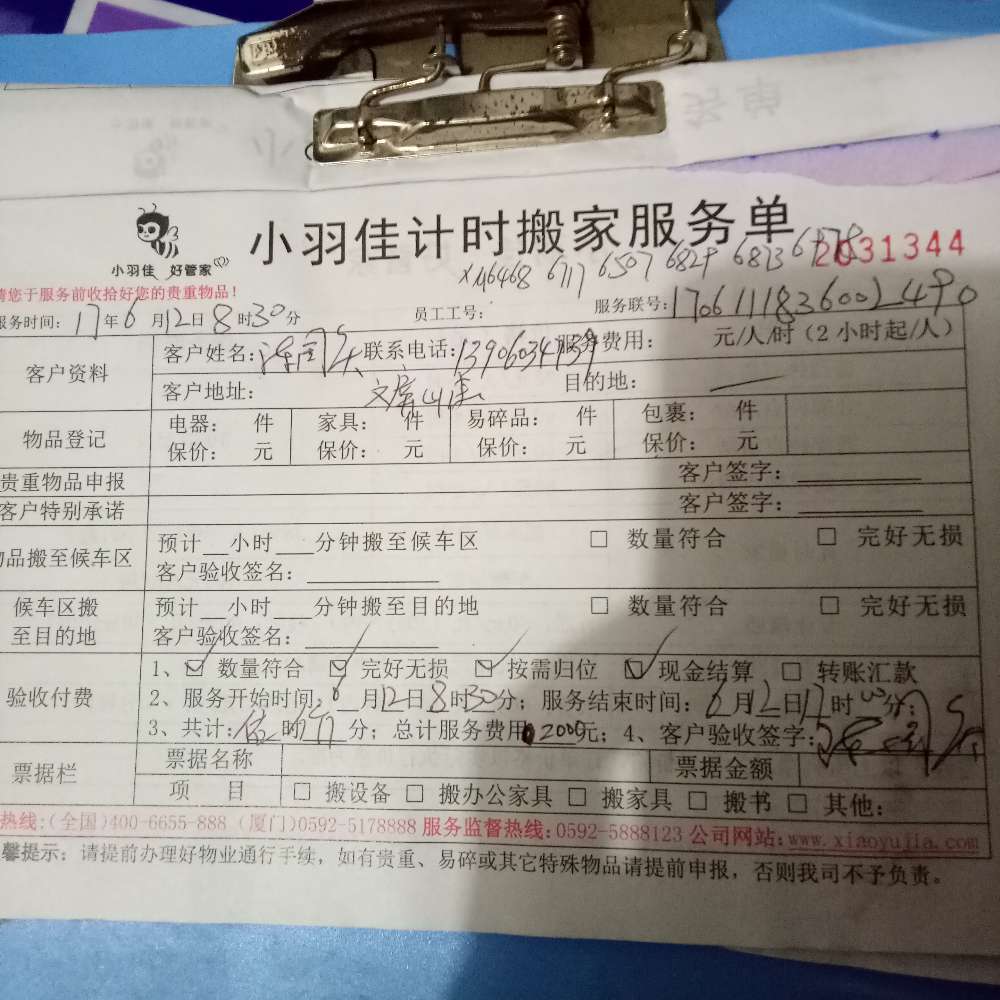 小羽佳 好管家
小羽佳计时搬家服务单
2031344
X46468 6717 6507 6829 6823
请您于服务前收拾好您的贵重物品！
服务时间：17年6月12日8时30分 员工工号： 服务联号：1706111836002490
客户资料
客户姓名： 联系电话： 服务费用： 元/人/时（2小时起/人）
客户地址： 目的地：
物品登记
电器： 件 家具： 件 易碎品： 件 包裹： 件
保价： 元 保价： 元 保价： 元 保价： 元
贵重物品申报 客户签字：
客户特别承诺 客户签字：
物品搬至候车区
预计__小时___分钟搬至候车区 □ 数量符合 □ 完好无损
客户验收签名：
候车区搬至目的地
预计__小时___分钟搬至目的地 □ 数量符合 □ 完好无损
客户验收签名：
验收付费
1、☑ 数量符合 ☑ 完好无损 ☑ 按需归位 ☑ 现金结算 □ 转账汇款
2、服务开始时间：6月12日8时30分；服务结束时间：6月12日17时00分；
3、共计： 时 分；总计服务费用 2000元；4、客户验收签字：
票据栏
票据名称 票据金额
项 目 □ 搬设备 □ 搬办公家具 □ 搬家具 □ 搬书 □ 其他：
热线：（全国）400-6655-888（厦门）0592-5178888 服务监督热线：0592-5888123 公司网站：www.xiaoyujia.com
馨提示：请提前办理好物业通行手续，如有贵重、易碎或其它特殊物品请提前申报，否则我司不予负责。